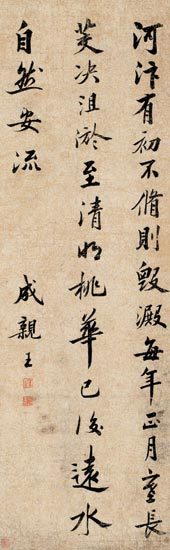 河汴有初不脩則毀澱每年正月塞長
茭决沮淤至清明桃華已後遠水
自然安流
成親王